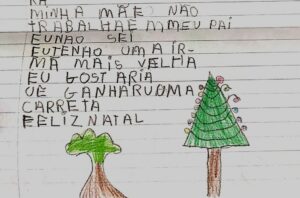 RA
MINHA MÃE NÃO
TRABALHA E A MEU PAI
EU NÃO SEI
EU TENHO UMA IR-
MA MAIS VELHA
EU GOSTARIA
DE GANHAR UOMA
CARRETA
FELIZ NATAL